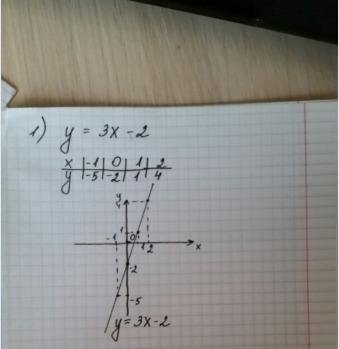 1) y = 3x - 2
x | -1 | 0 | 1 | 2
y | -5 | -2 | 1 | 4
y
4
1
-1 0 1 2 x
-2
-5
y = 3x - 2